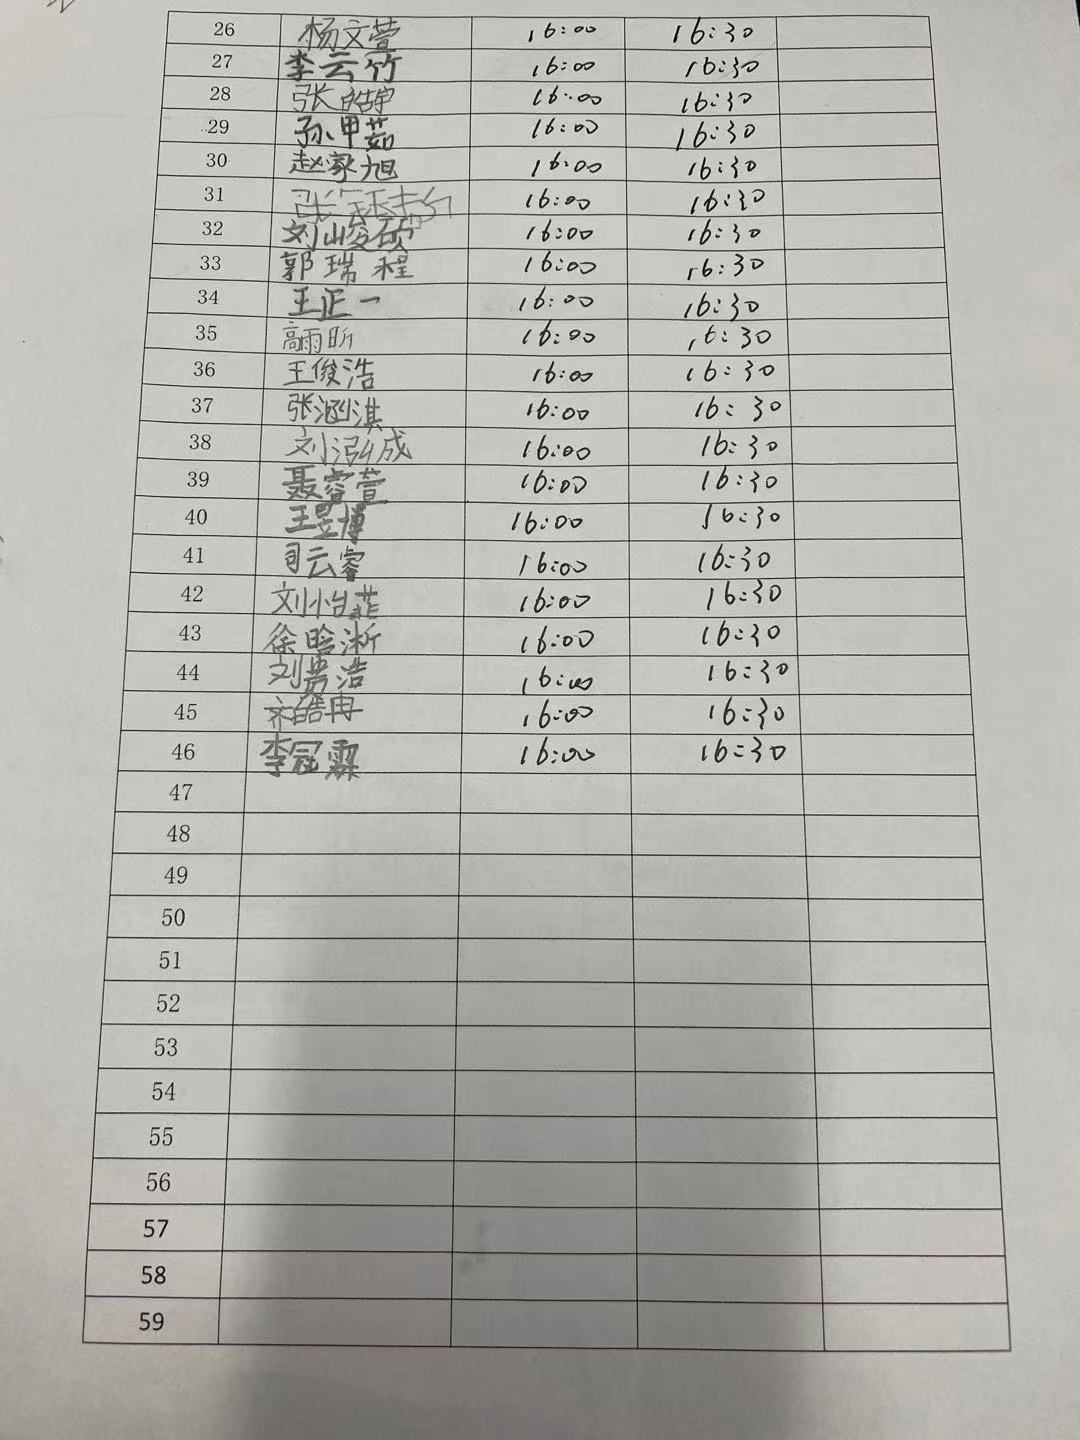 26 杨文萱 16:00 16:30
27 李云竹 16:00 16:30
28 张皓宇 16:00 16:30
29 孙甲茹 16:00 16:30
30 赵家旭 16:00 16:30
31 张 16:00 16:30
32 刘峻硕 16:00 16:30
33 郭瑞程 16:00 16:30
34 王正一 16:00 16:30
35 高雨昕 16:00 16:30
36 王俊浩 16:00 16:30
37 张涵淇 16:00 16:30
38 刘泓成 16:00 16:30
39 聂容萱 16:00 16:30
40 王昱博 16:00 16:30
41 司云睿 16:00 16:30
42 刘怡菲 16:00 16:30
43 徐晗淅 16:00 16:30
44 刘贵浩 16:00 16:30
45 齐皓冉 16:00 16:30
46 李冠霖 16:00 16:30
47
48
49
50
51
52
53
54
55
56
57
58
59